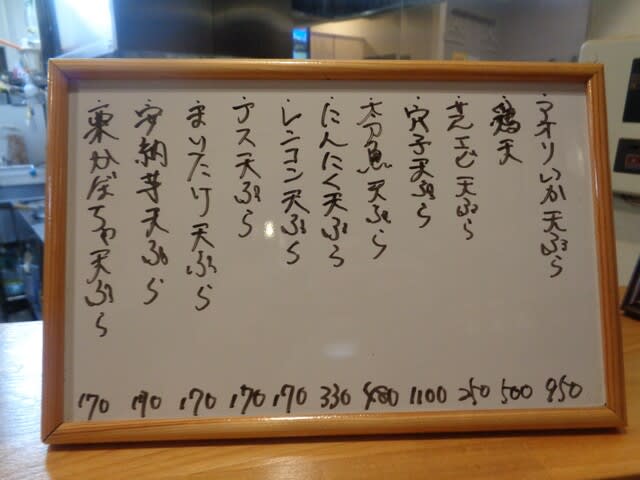 ・アオリいか天ぷら 950
・鶏天 500
・サルエビ天ぷら 250
・穴子天ぷら 1100
・太刀魚天ぷら 480
・にんにく天ぷら 330
・レンコン天ぷら 170
・ナス天ぷら 170
・まいたけ天ぷら 170
・安納芋天ぷら 190
・栗かぼちゃ天ぷら 170